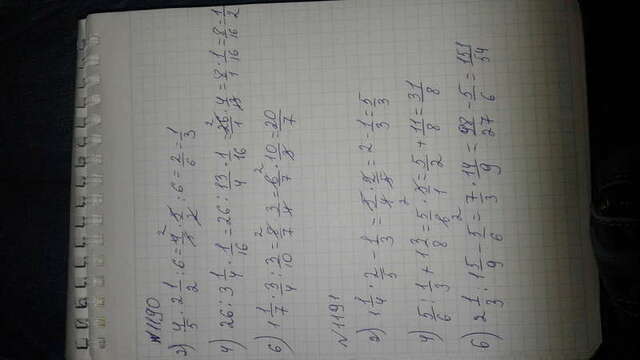 №1190
2) 4/5 · 2 1/2 : 6 = 4/5 · 5/2 : 6 = 2/6 = 1/3
4) 26 : 3 1/4 · 1/16 = 26 : 13/4 · 1/16 = 26/1 · 4/13 = 8/1 · 1/16 = 8/16 = 1/2
6) 1 1/7 · 3/4 : 3/10 = 8/7 · 3/4 = 6/7 · 10/3 = 20/7
№1191
2) 1 1/4 · 2/5 - 1/3 = 5/4 · 2/5 = 2 - 1/3 = 5/3
4) 5/6 : 1/3 + 1 3/8 = 5/6 · 3/1 = 5/2 + 11/8 = 31/8
6) 2 1/3 : 1 5/9 - 5/6 = 7/3 · 14/9 = 98/27 - 5/6 = 151/54